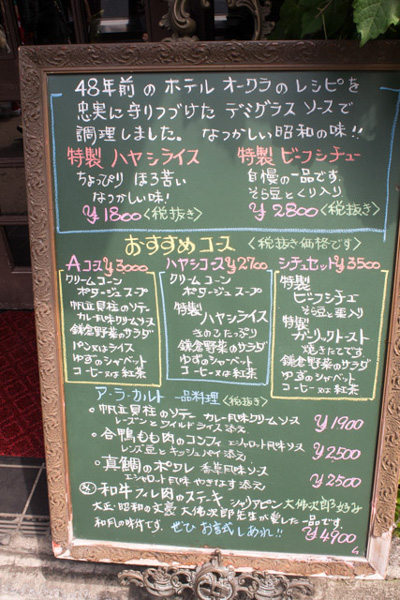 48年前のホテルオークラのレシピを
忠実に守りつづけたデミグラスソースで
調理しました。なつかしい昭和の味!!
特製ハヤシライス
ちょっぴりほろ苦い
なつかしい味!
¥1800<税抜き>
特製ビーフシチュー
自慢の一品です
そら豆とくり入り
¥2800<税抜き>
おすすめコース <税抜き価格です>
Aコース¥3000
クリームコーン
ポタージュスープ
帆立貝柱のソテー
カレー風味クリームソース
鎌倉野菜のサラダ
パン又はライス
ゆずのシャーベット
コーヒー又は紅茶
ハヤシコース¥2700
クリームコーン
ポタージュスープ
特製
ハヤシライス
きのこたっぷり
鎌倉野菜のサラダ
ゆずのシャーベット
コーヒー又は紅茶
シチューセット¥3500
特製
ビーフシチュー
そら豆と栗入り
特製
ガーリックトースト
焼きたてです
鎌倉野菜のサラダ
ゆずのシャーベット
コーヒー又は紅茶
ア・ラ・カルト 一品料理<税抜き>
○帆立貝柱のソテー カレー風味クリームソース
レーズンとワイルドライス添え ¥1900
○合鴨もも肉のコンフィ エシャロット風味ソース
レンズ豆とキッシュパイ添え ¥2500
○真鯛のポワレ 香草風味ソース
エシャロット風味 やきなす添え ¥2500
和牛フィレ肉のステーキ シャリアピン 大佛次郎好み
大正・昭和の文豪 大佛次郎先生が愛した一品です。
和風の味付です。ぜひお試しあれ!! ¥4900